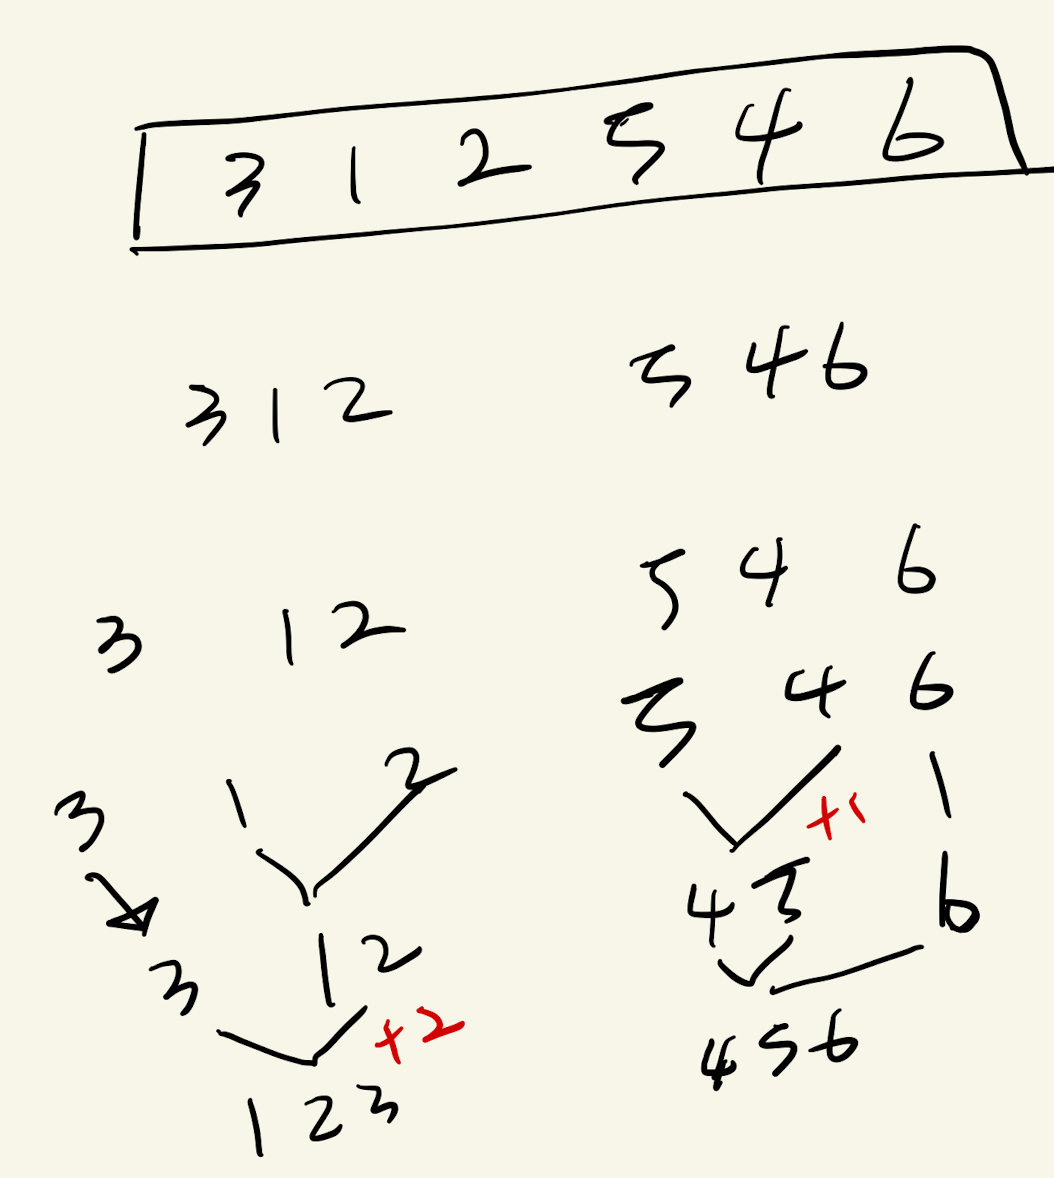 3 1 2 5 4 6
3 1 2 5 4 6
5 4 6
3 1 2
5 4 6
3 1 2
+1
4 5 6
3 1 2
+2
4 5 6
1 2 3